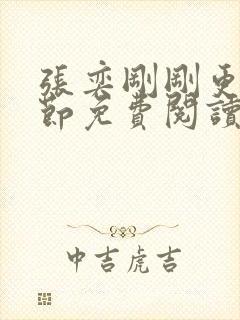 張奕剛剛更
節免費閱讀
中吉虎吉